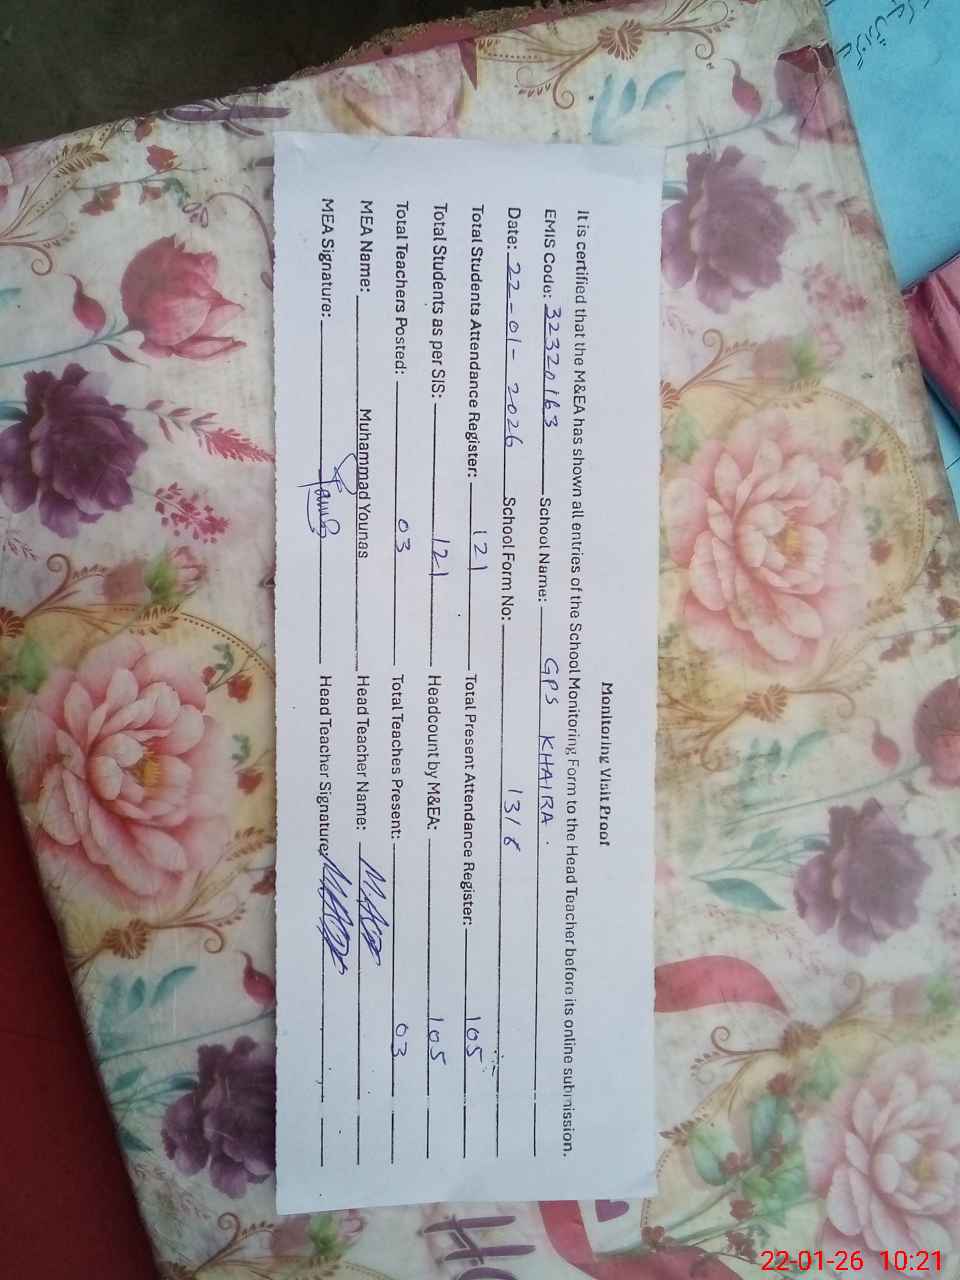 Monitoring Visit Proof
It is certified that the M&EA has shown all entries of the School Monitoring Form to the Head Teacher before its online submission.
EMIS Code: 32320163 School Name: GPS KHAIRA.
Date: 22-01-2026 School Form No: 1318
Total Students Attendance Register: 121 Total Present Attendance Register: 105
Total Students as per SIS: 121 Headcount by M&EA: 105
Total Teachers Posted: 03 Total Teaches Present: 03
MEA Name: Muhammad Younas Head Teacher Name:
MEA Signature: Head Teacher Signature:
22-01-26 10:21